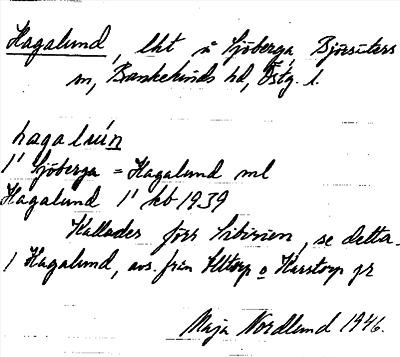 Hagalund, lht å Sjöberga, Björsäters
sn, Bankekinds hd, Östg. l.
hagalún
1' Sjöberga = Hagalund ml
Hagalund 1' kb 1939
Kallades förr Sibirien, se detta.
1 Hagalund, avs. från Ulltorp o Karstorp gr
Maja Nordlund 1946.